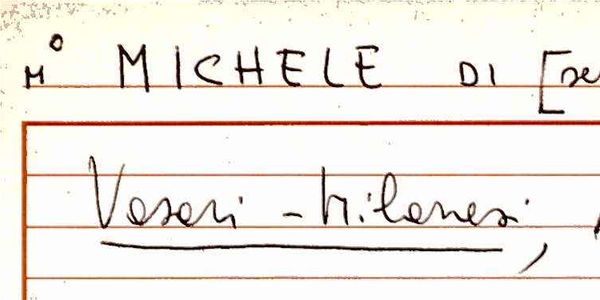 Mº MICHELE DI [se
Vasari - Milanesi,